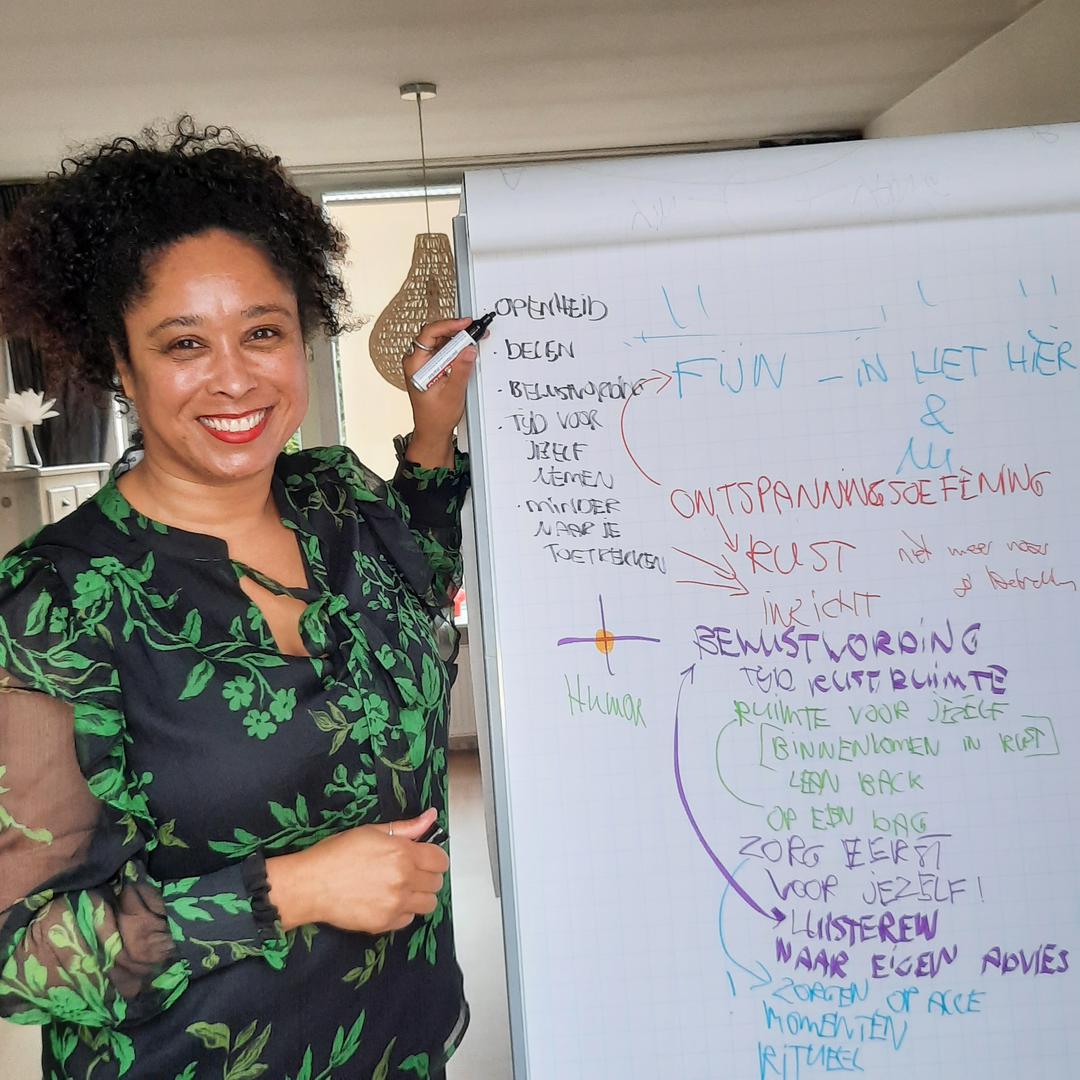 · OPENHEID
· DELEN
· BEWUSTWORDING
· TIJD VOOR
JEZELF
NEMEN
· MINDER
NAAR JE
TOETREKKEN
FIJN - IN HET HIER
&
NU
ONTSPANNINGSOEFENING
RUST
niet meer naar
je
INZICHT
BEWUSTWORDING
TIJD RUST RUIMTE
Humor
RUIMTE VOOR JEZELF
BINNENKOMEN IN RUST
LEAN BACK
OP EEN DAG
ZORG EERST
VOOR JEZELF!
LUISTEREN
NAAR EIGEN ADVIES
ZORGEN OP ALLE
MOMENTEN
RITUEEL